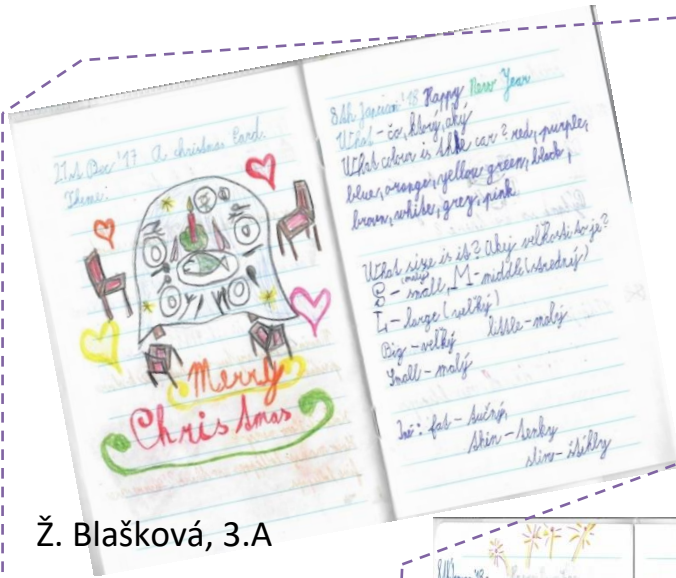 21st Dec '17 A christmas Card.
Theme:
Merry
Christmas
8th '18 Happy New Year
What - čo, ktorý, aký
What colour is the car? red, purple,
blue, orange, yellow green, black,
brown, white, grey, pink
What size is it? Aký veľkosti to je?
S - small, (malý) M - middle (stredný)
L - large (veľký)
Big - veľký little - malý
Small - malý
Iné: fat - tučný,
thin - tenký
slim - štíhly
Ž. Blašková, 3.A